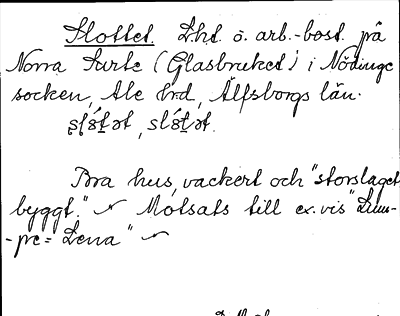 Slottet. Lht o. arb.-bost. på
Norra Surte (Glasbruket) i Nödinge
socken, Ale hrd, Älfsborgs län.
slo̱tət, slo̱tət.
Bra hus, vackert och "storslaget
byggt." Motsats till ex.vis "Lum-
-pe=Lena"